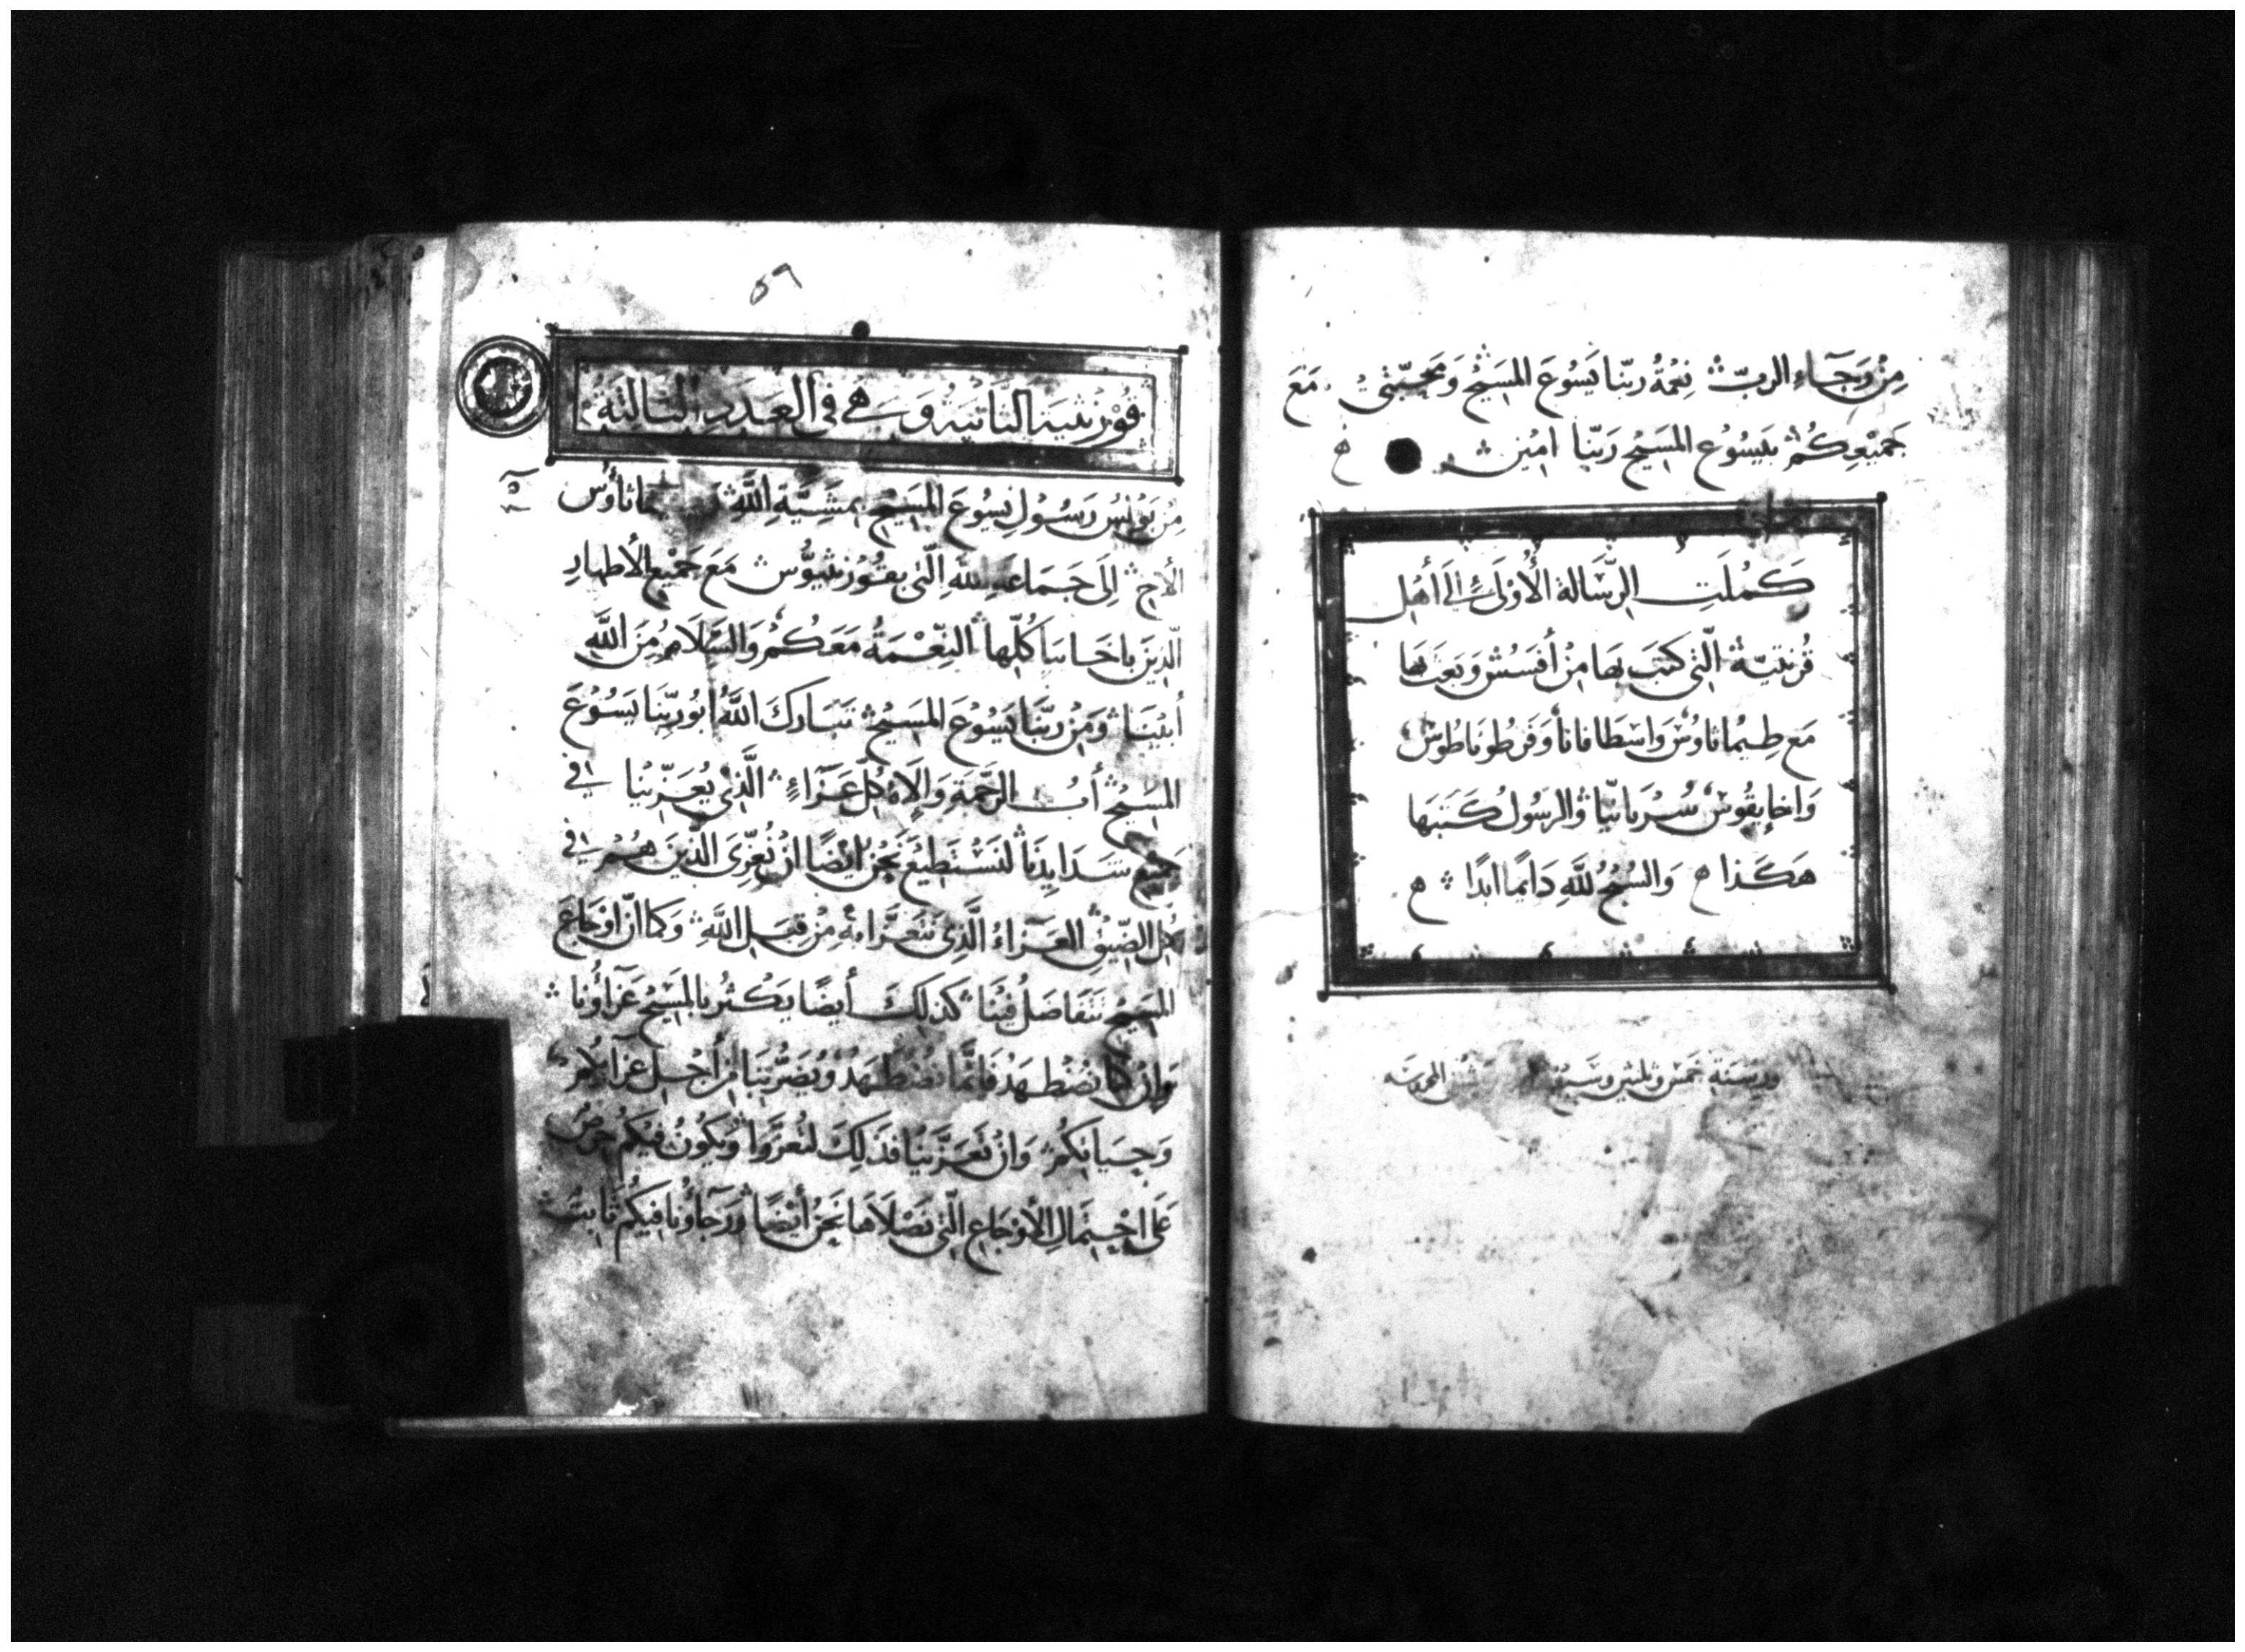 مِنْ وَجَآءِ الربّ نِعْمَةُ ربّنا يَسُوعَ المَسَيْحِ وَمحَبّتي مَعَ
جَمِيْعِكُمْ بيَسُوُع المَسَيْحِ رَبّنا امِين
كَمُلَتِ الرّسَالة الأُوْلَى إلَى أهْل
قُرنتيّة الّتي كتَبَ بهَا مِنْ أفسَسُسْ وَبَعَث بهَا
مَع طِيمَاثاوُسْ وَاسْطَافانَا وَفَرطُونَاطُوسْ
وَاخَايِقُوسْ سُرْيَانيّا وَالرسُولُ كَتبَهَا
هَكَذا وَالسُبْحُ للَّهِ دَايمًا ابَدًا
٥٩
قُوْرْنثيَهْ الثَانيَهْ وَهِي في العَدَدِ الثالِثَة
مِن بَوْلُسْ رَسُوْلِ يَسُوعَ المَسَيْحِ بمَشِيَّةِ اللَّهِ ثاوُس
الأخ إلَى جَمَاعَةِ اللهِ الّتي بقُوْرنثيوُّسْ مَعَ جَميْعِ الأطهارِ
الّذِينَ باخَايَا كُلّها النِعْمَةُ مَعَكُمْ وَالسَلَامُ مِنَ اللَّهِ
أبيْنَا وَمِنْ ربّنَا يَسُوُعَ المَسَيْحِ تبَارَكَ اللَّهُ ابُو ربّنَا يَسُوُعَ
المَسَيْحِ أبُ الرَّحْمَةِ وَالَاهُ كُلّ عَزَآءٍ الَّذِي يُعَزّيْنَا في
جَميْعِ شَدَايِدِنَا لنَسْتَطِيْعَ نَحْنُ ايْضًا انْ نُعَزِّىَ الّذِيْنَ هُمْ في
كُلّ الضِّيْقِ العَزَاءُ الَّذِي نَتَعَزَّاهُ مِنْ قِبَلِ اللَّهِ وَكَما انّ اوْجَاعَ
المَسَيْحِ تتَفَاضَلُ فيْنَا كذلِكَ أيضًا يَكْثرُ بالمَسِيْحِ عَزَاؤُنا
وَانْ كنا نُضْطَهَدْ فَانّمَا نُضْطَهَدُ وَيُضَرُّ بنَا مِنْ أجْلِ عَزَايِكُمْ
وَحَيَاتِكُمْ وَانْ تَعَزَّيْنَا فَذَلِكَ لتُعَزَّوا وَيَكُونُ فيْكُمْ حِرْصٌ
عَلى احْتِمَالِ الأوْجَاعِ الّتي نَصْلَاهَا نَحْنُ أيْضًا وَرَجَاؤُنا فيْكُمْ ثَابِتٌ